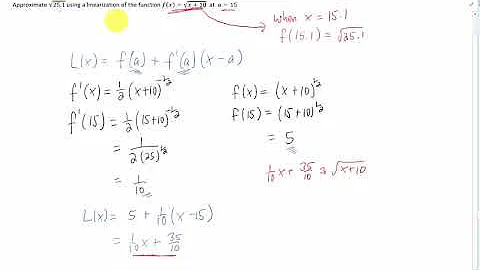 Approximate √25.1 using a linearization of the function f(x) = √x + 10 at a = 15
when x = 15.1
f(15.1) = √25.1
L(x) = f(a) + f'(a) (x - a)
f'(x) = 1/2 (x+10)^-1/2
f'(15) = 1/2 (15+10)^-1/2
= 1/2(25)^1/2
= 1/10
f(x) = (x+10)^1/2
f(15) = (15+10)^1/2
= 5
1/10 x + 35/10 ≈ √x+10
L(x) = 5 + 1/10 (x-15)
= 1/10 x + 35/10